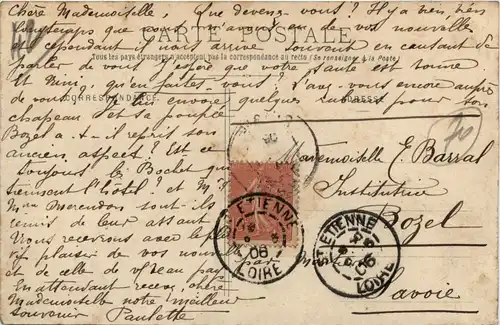 Chère Mademoiselle, Que devenez-vous? Il y a bien bien
longtemps que nous n'avons eu de vos nouvelles
et cependant il nous arrive souvent en causant de
CARTE POSTALE
Tous les pays étrangers n'acceptent pas la correspondance au recto (Se renseigner à la Poste)
parler de vous. J'espère que votre santé est bonne
et Mimi, qu'en faites-vous? L'avez-vous encore auprès
de vous? envoie quelques pour son
CORRESPONDANCE
ADRESSE
chapeau et sa poupée
Bozel a-t-il repris son
ancien aspect? Est-ce
toujours les Bochet qui
tiennent l'hôtel? et M. et
Mme sont-ils
remis de leur
Nous recevrons avec le plus
plaisir de vos nouvelles
et de celle de votre beau pays
En attendant recevez, chère
Mademoiselle notre meilleur
souvenir Paulette
Mademoiselle E. Barral
Institutrice
Bozel
Savoie
ST ETIENNE
06
LOIRE
ST ETIENNE
06
LOIRE